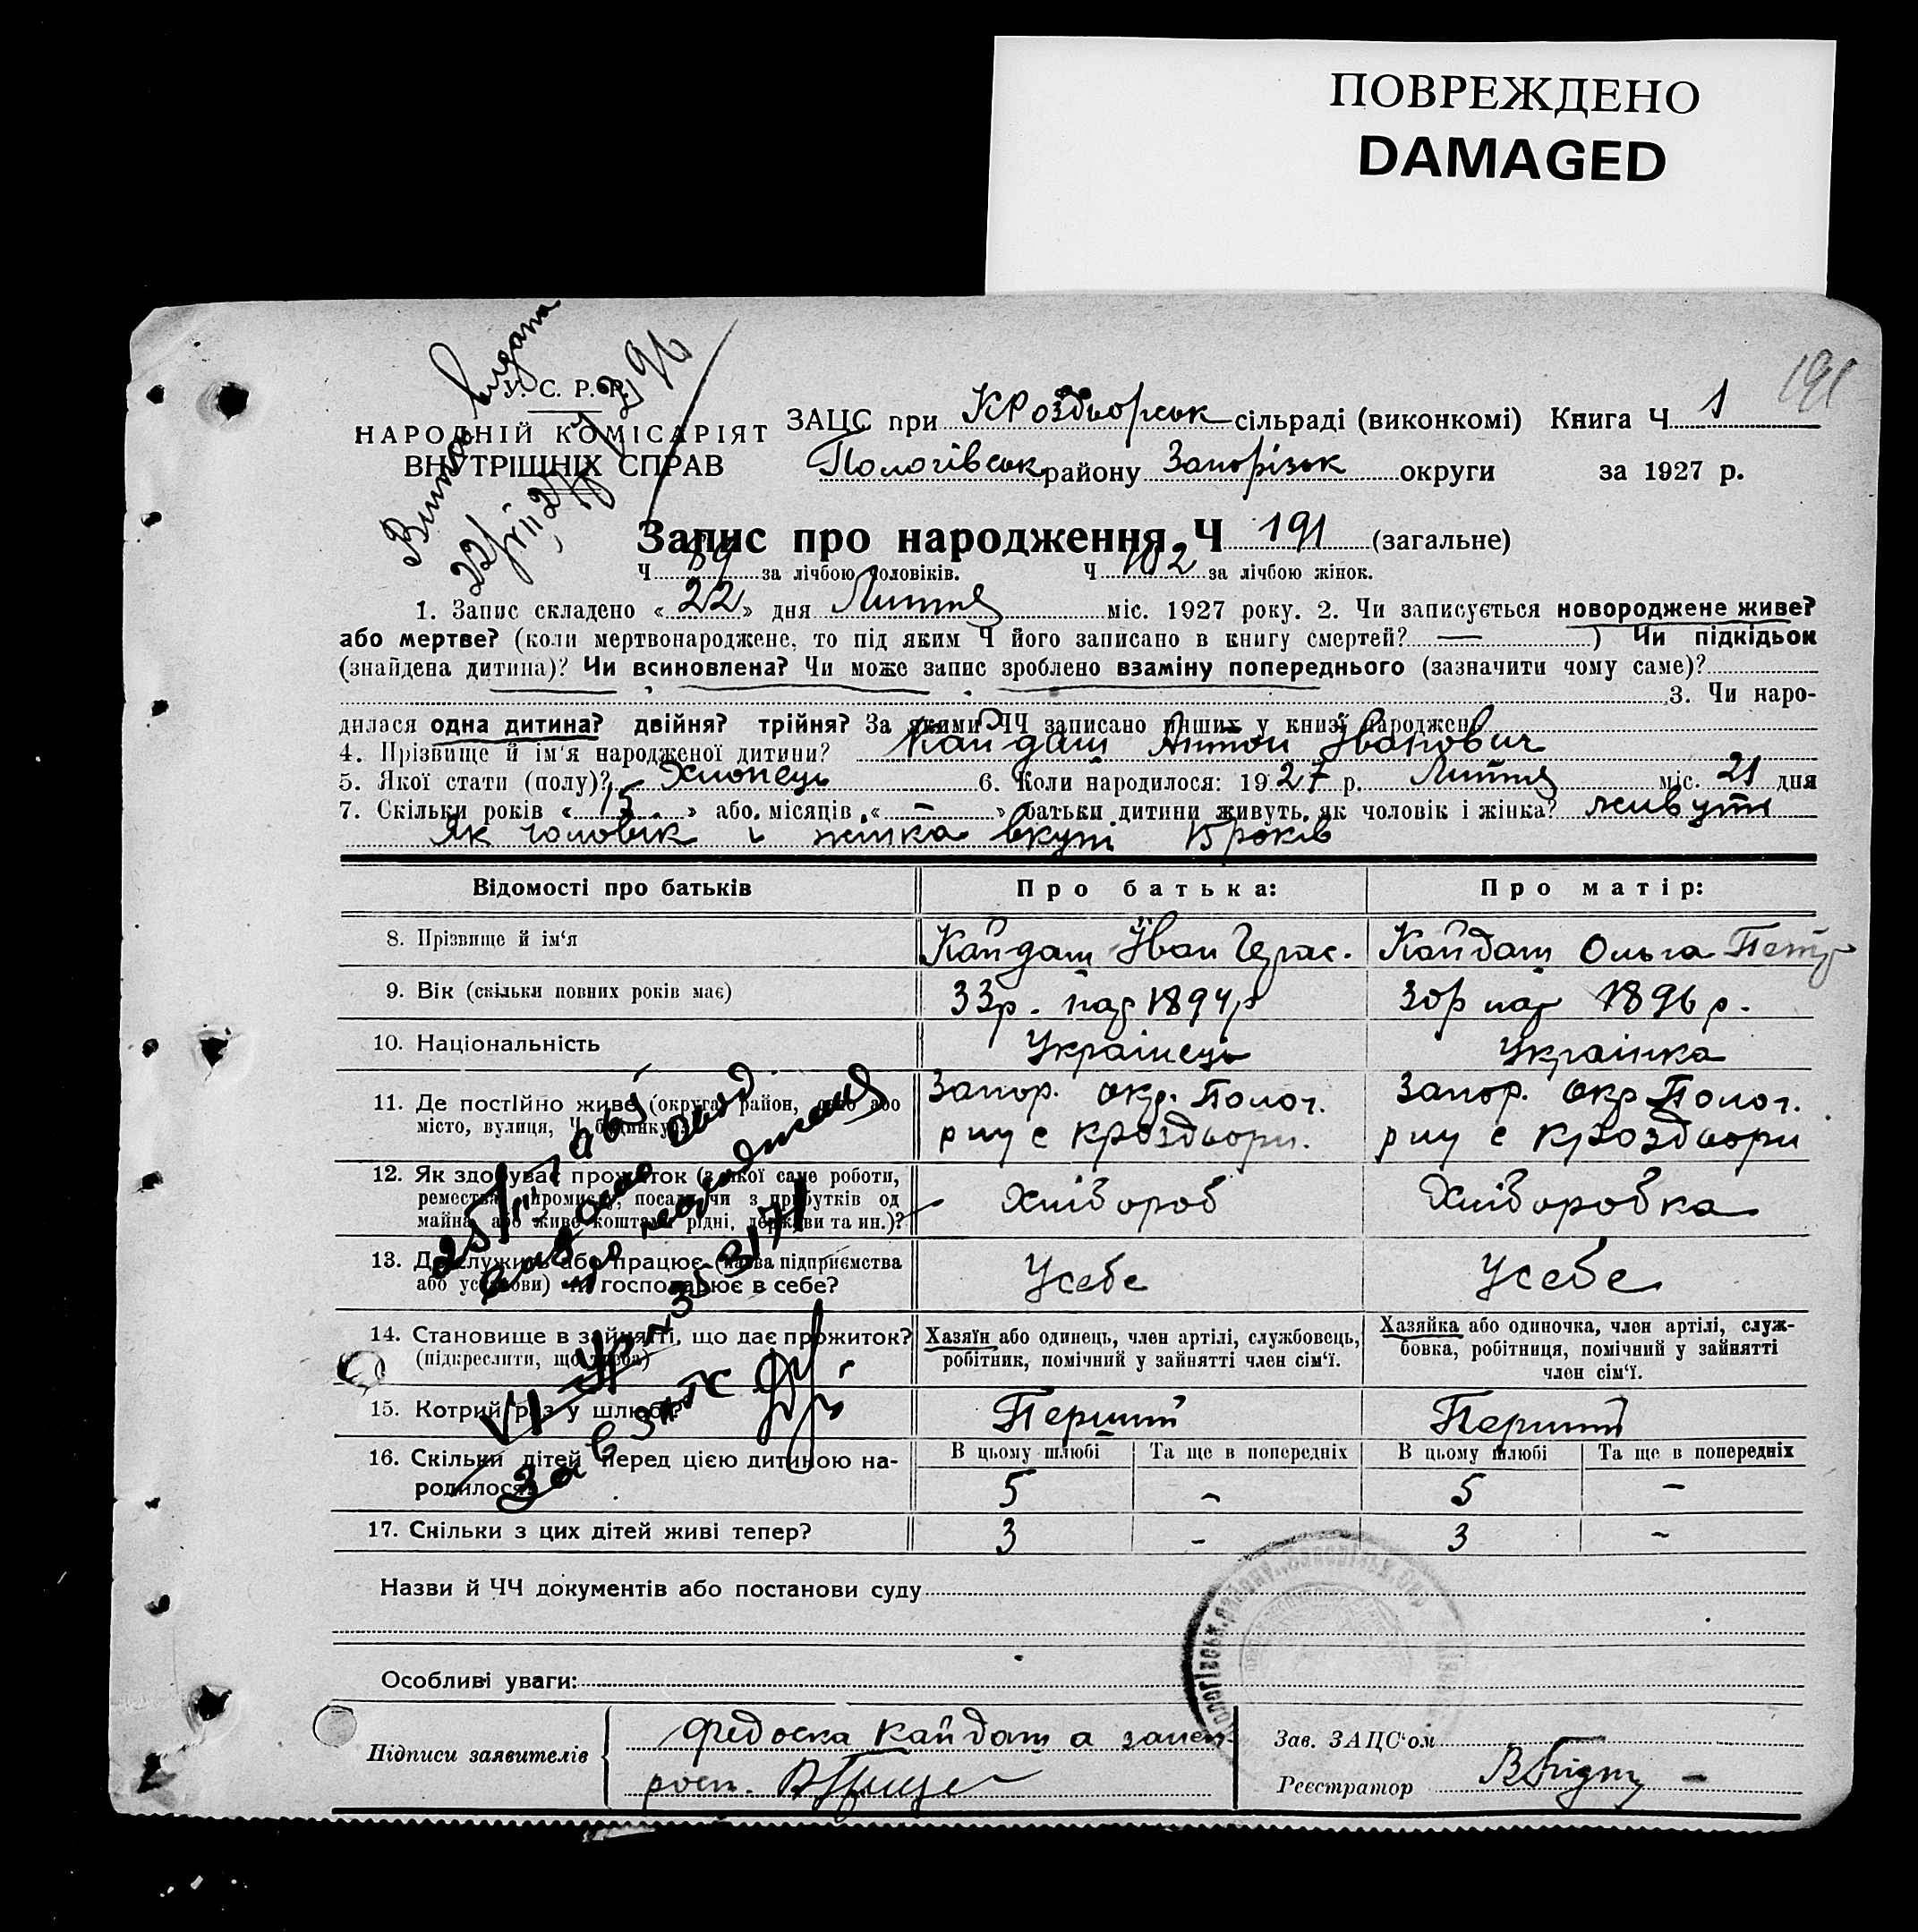 ПОВРЕЖДЕНО
DAMAGED
191
У. С. Р. Р.
НАРОДНІЙ КОМІСАРІЯТ
ВНУТРІШНІХ СПРАВ
ЗАЦС при КРоздворськ сільраді (виконкомі) Книга Ч 1
Пологівськ району Запорізьк округи за 1927 р.
Запис про народження Ч 191 (загальне)
Ч 89 за лічбою чоловіків. Ч 102 за лічбою жінок.
1. Запис складено «22» дня Липня міс. 1927 року. 2. Чи записується новороджене живе?
або мертве? (коли мертвонароджене, то під яким Ч його записано в книгу смертей? —) Чи підкідьок
(знайдена дитина)? Чи всиновлена? Чи може запис зроблено взаміну попереднього (зазначити чому саме)?
3. Чи наро-
дилася одна дитина? двійня? трійня? За якими ЧЧ записано инших у книзі народжень
4. Прізвище й ім'я народженої дитини? Кайдаш Антон Іванович
5. Якої стати (полу)? Хлопець 6. Коли народилося: 1927 р. Липня міс. 21 дня
7. Скільки років «15» або місяців «—» батьки дитини живуть, як чоловік і жінка? живуть
Як чоловік і жінка вкупі 15 років
Відомості про батьків Про батька: Про матір:
8. Прізвище й ім'я Кайдаш Іван Герас. Кайдаш Ольга Петр
9. Вік (скільки повних років має) 33р. нар 1894р 30р нар 1896 р.
10. Національність Українець Українка
11. Де постійно живе (округа, район, село або
місто, вулиця, Ч будинку)?
Запор. окр. Полог. Запор. Окр Полог.
рну с КРоздвори. рну с КРоздвори
12. Як здобуває прожиток (з якої саме роботи,
ремества, промислу, посади чи з прибутків од
майна, або живе коштами рідні, держави та ин.)?
Хлібороб Хліборобка
13. Де служить або працює (назва підприємства
або установи) чи господарює в себе?
Усебе Усебе
14. Становище в зайнятті, що дає прожиток?
(підкреслити, що треба)
Хазяїн або одинець, член артілі, службовець,
робітник, помічний у зайнятті член сім'ї.
Хазяйка або одиночка, член артілі, служ-
бовка, робітниця, помічний у зайнятті
член сім'ї.
15. Котрий раз у шлюбі? Перший Перший
16. Скільки дітей перед цією дитиною на-
родилося?
В цьому шлюбі Та ще в попередніх В цьому шлюбі Та ще в попередніх
5 - 5 -
17. Скільки з цих дітей живі тепер? 3 - 3 -
Назви й ЧЧ документів або постанови суду
Особливі уваги:
Підписи заявителів Федоска Кайдаш а
росп.
Зав. ЗАЦС'ом
Реєстратор